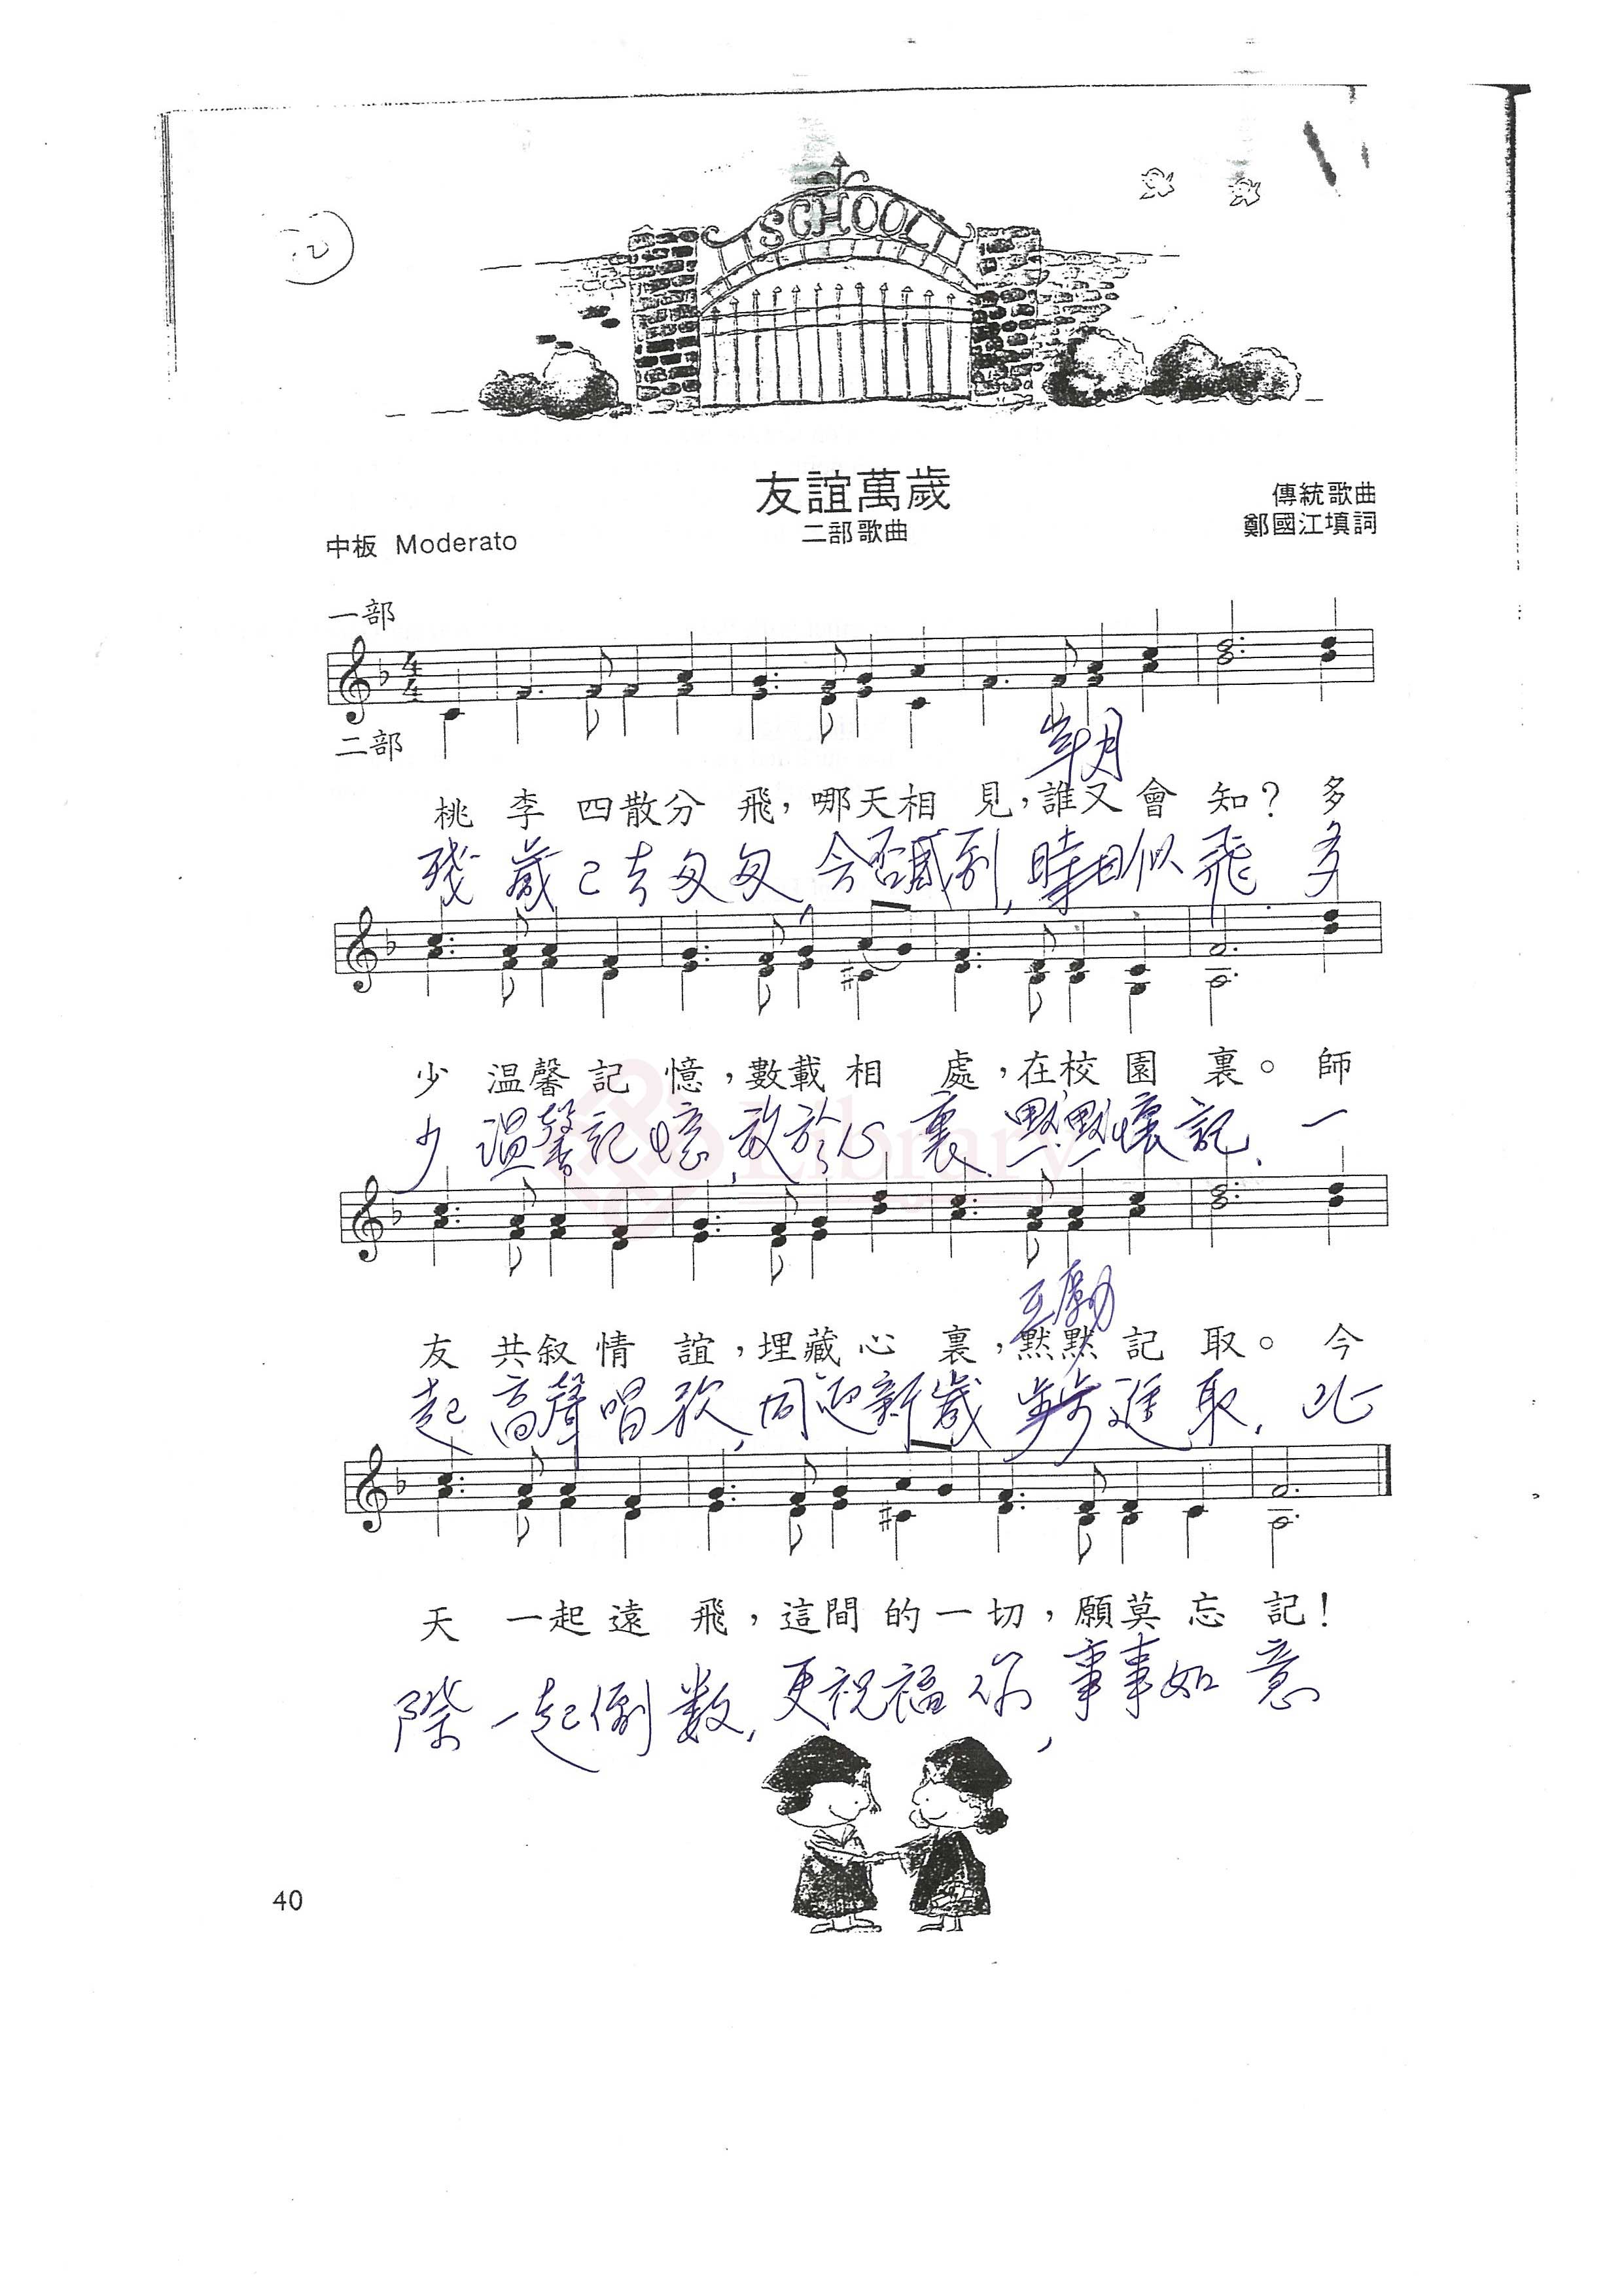 2
SCHOOL
友誼萬歲
二部歌曲
傳統歌曲
鄭國江填詞
中板 Moderato
一部
二部
歲月
桃李四散分飛，哪天相見，誰又會知？多
殘歲已去匆匆,今否感到,時日似飛 多
少溫馨記憶，數載相處，在校園裏。師
少溫馨記憶,放於心裏.默默懷記.一
Library
互勵
友共叙情誼，埋藏心裏，默默記取。今
起高聲唱歌,同迎新歲 步步進取.此
天一起遠飛，這間的一切，願莫忘記！
際一起倒數,更祝福你,事事如意
40